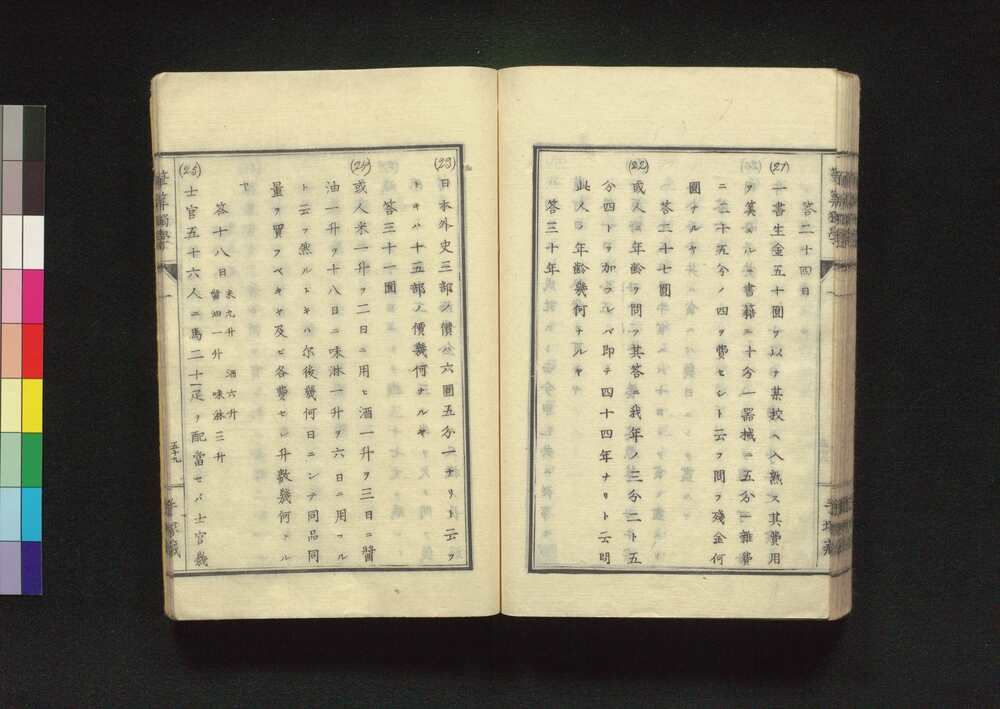 答二十四日
(21)
一書生金五十圓ヲ以テ某校ヘ入熟ス其費用
ヲ算スルニ書籍ニ十分一器械ニ五分一雜費
ニ二十五分ノ四ヲ費セシト云フ問フ残金何
圓ナルヤ
答二十七圓
(22)
或人ノ年齢ヲ問フ其答ニ我年ノ三分二ト五
分四トヲ加フレバ即チ四十四年ナリト云問
此人ノ年齢幾何ナルヤ
答三十年
(23)
日本外史三部ノ價ハ六圓五分一ナリト云フ
トキハ十五部ノ價幾何ナルヤ
答三十一圓
(24)
或人米一升ヲ二日ニ用ヒ酒一升ヲ三日ニ醤
油一升ヲ十八日ニ味淋一升ヲ六日ニ用フル
ト云フ然ルトキハ尓後幾何日ニシテ同品同
量ヲ買フベキヤ及ビ各費セシ升数幾何ナル
ヤ
答十八日
米九升 酒六升
醤油一升 味淋三升
(25)
士官五十六人ニ馬二十一疋ヲ配當セバ士官幾
五十九